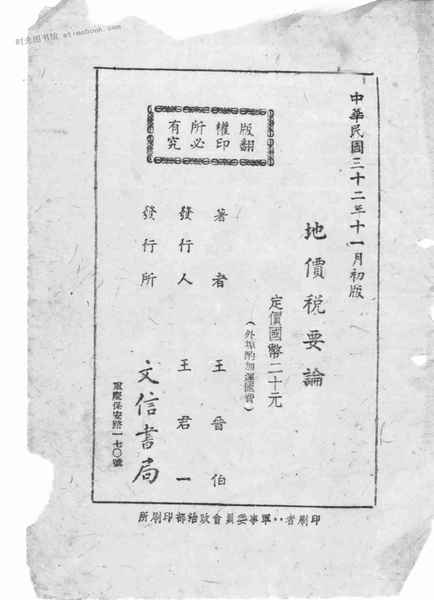 时光图书馆 etimebook.com
中華民國三十二年十一月初版
地價稅要論
定價國幣二十元
（外埠酌加運匯費）
著者 王晉伯
發行人 王君一
發行所 文信書局
重慶保安路一七〇號
版權所有
翻印必究
印刷者：軍事委員會政治部印刷所